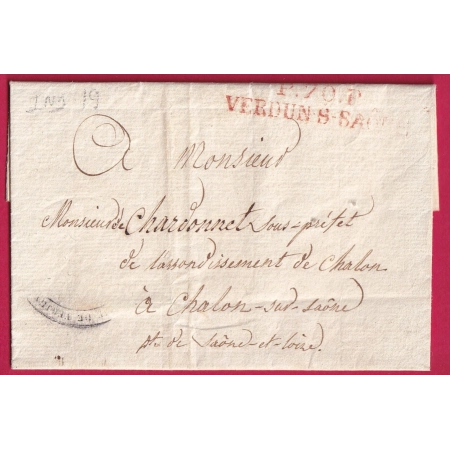 Inn 19
P.70.P
VERDUN-S-SAÔ
A Monsieur
Monsieur de Chardonnet sous-préfet
de l'arrondissement de Chalon
à Chalon-sur-Saône
pt. de Saône-et-Loire.